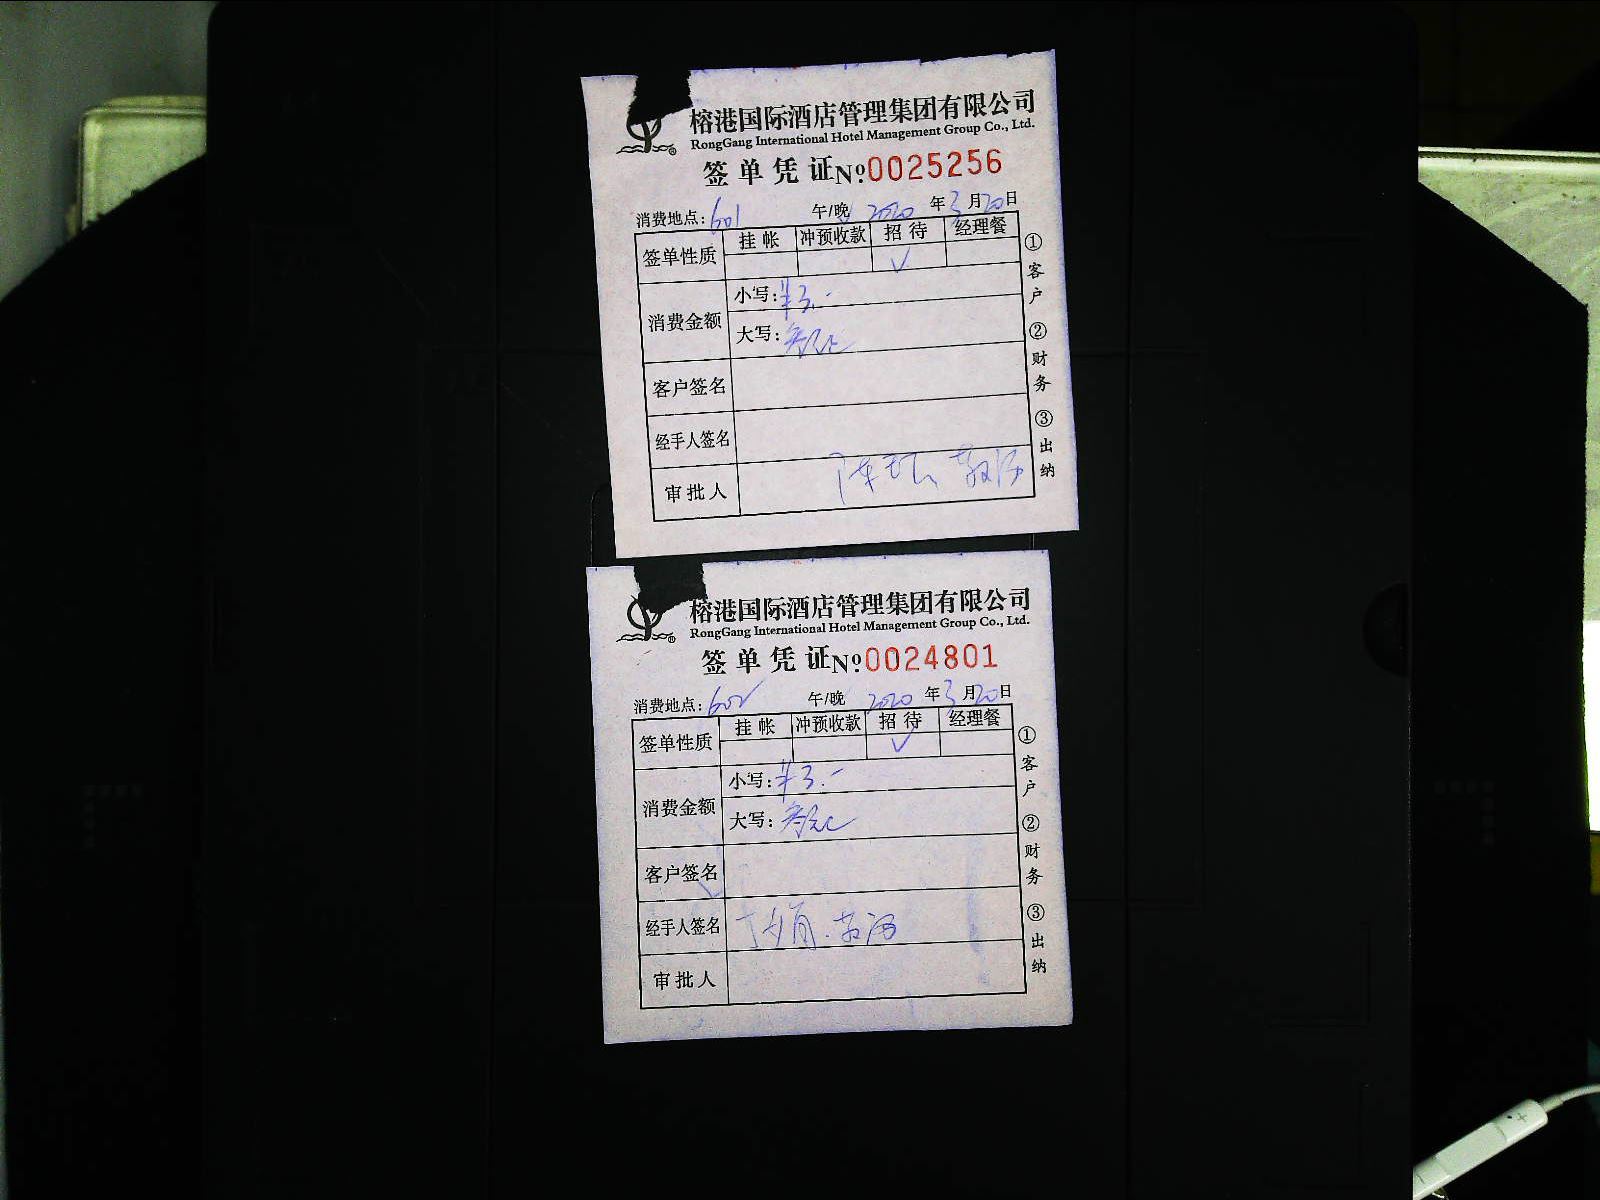 榕港国际酒店管理集团有限公司
RongGang International Hotel Management Group Co., Ltd.
签单凭证 Nº 0025256
消费地点: 601 午/晚 2020 年 3 月 20 日
签单性质 挂帐 冲预收款 招待 经理餐
✓
消费金额
小写: ¥3.-
大写: 叁元
客户签名
经手人签名
审批人
①客户 ②财务 ③出纳
榕港国际酒店管理集团有限公司
RongGang International Hotel Management Group Co., Ltd.
签单凭证 Nº 0024801
消费地点: 602 午/晚 2020 年 3 月 20 日
签单性质 挂帐 冲预收款 招待 经理餐
✓
消费金额
小写: ¥3.-
大写: 叁元
客户签名
经手人签名
审批人
①客户 ②财务 ③出纳